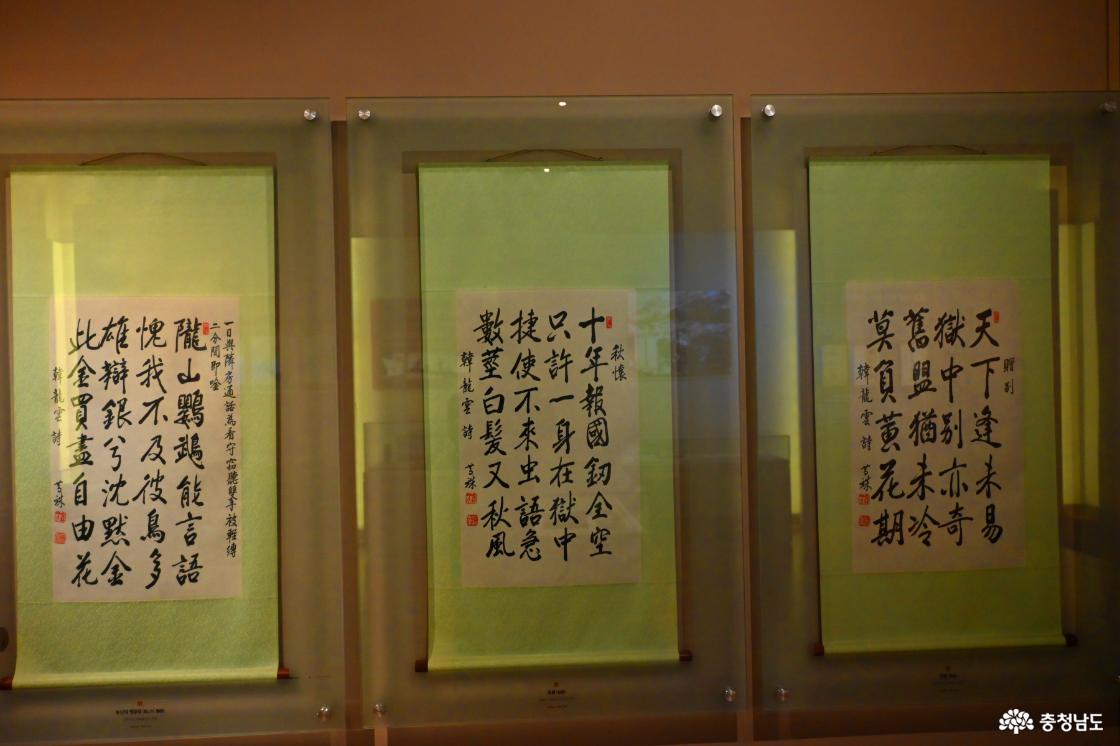 一日與隣房通話為看守窃聽雙手被輕縛
二分間即唫
隴山鸚鵡能言語
愧我不及彼鳥多
雄辯銀兮沈黙金
此金買盡自由花
韓龍雲 詩
秋懷
十年報國釰全空
只許一身在獄中
捷使不来虫語急
數莖白髪又秋風
韓龍雲 詩
贈別
天下逢未易
獄中別亦奇
舊盟猶未冷
莫負黄花期
韓龍雲 詩
충청남도